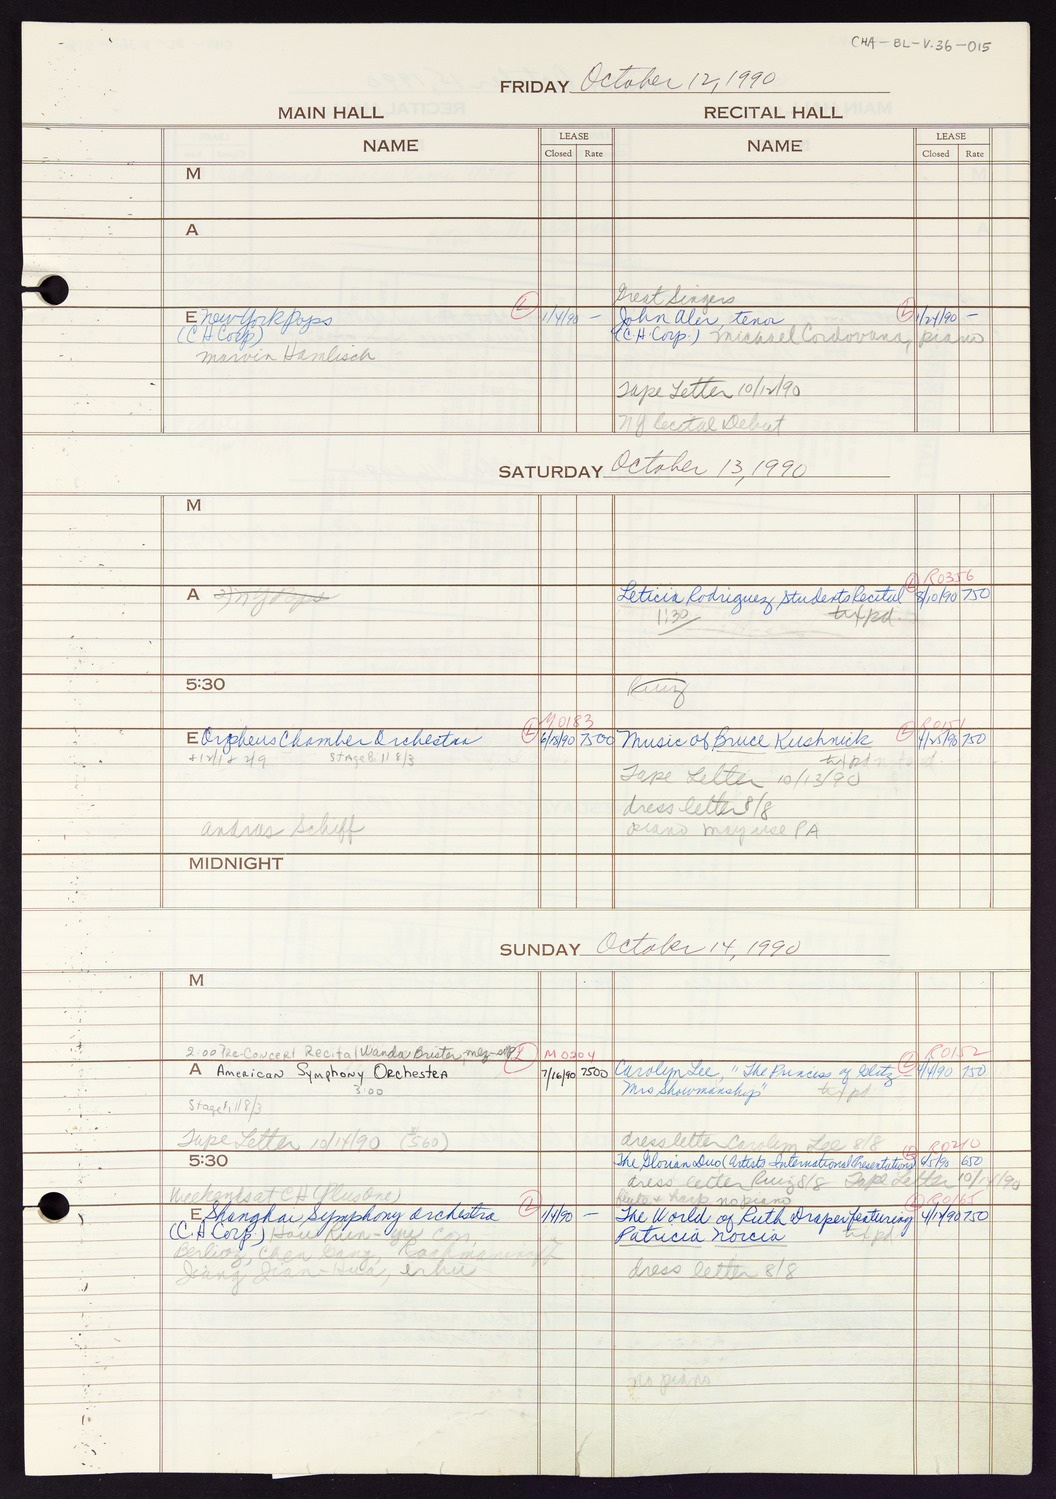 CHA-BL-V.36-015
FRIDAY October 12, 1990
MAIN HALL RECITAL HALL
NAME LEASE NAME LEASE
Closed Rate Closed Rate
M
A
Great Singers
E New York Pops 1/4/90 — John Aler, tenor 1/24/90 —
(C H Corp) (C.H. Corp.) Michael Cordovana, piano
Marvin Hamlisch
Tape Letter 10/12/90
NY Recital Debut
SATURDAY October 13, 1990
M
R0356
A NY Pops Leticia Rodriguez Students Recital 8/10/90 750
1:30 txpd.
5:30 Ruiz
M0183 R0151
E Orpheus Chamber Orchestra 6/18/90 7500 Music of Bruce Kushnick 4/25/90 750
+ 12/1 + 2/9 Stage 8: 11 8/3 txpd
Tape Letter 10/13/90
dress letter 8/8
Andras Schiff piano may use PA
MIDNIGHT
SUNDAY October 14, 1990
M
2:00 Pre-Concert Recital Wanda Brister, mez-sop M0204 R0152
A American Symphony Orchestra 7/16/90 7500 Carolyn Lee, "The Princess of Glitz 4/4/90 750
3:00 Mrs Showmanship" txpd
Stage 11 8/3
Tape Letter 10/14/90 ($560) dress letter Carolyn Lee 8/8 R0210
5:30 The Glorian Duo (Artists International Presentations) 6/5/90 650
dress letter Ruiz 8/8 Tape Letter 10/14/90
Weekends at CH (Plus One) flute + harp no piano R0165
E Shanghai Symphony Orchestra 1/4/90 — The World of Ruth Draper featuring 4/12/90 750
(C.H. Corp.) Hou Run-yu con, Patricia Norcia txpd
Berlioz, Chen Gang, Rachmaninoff
Jiang Jian-Hua, erhu dress letter 8/8
no piano